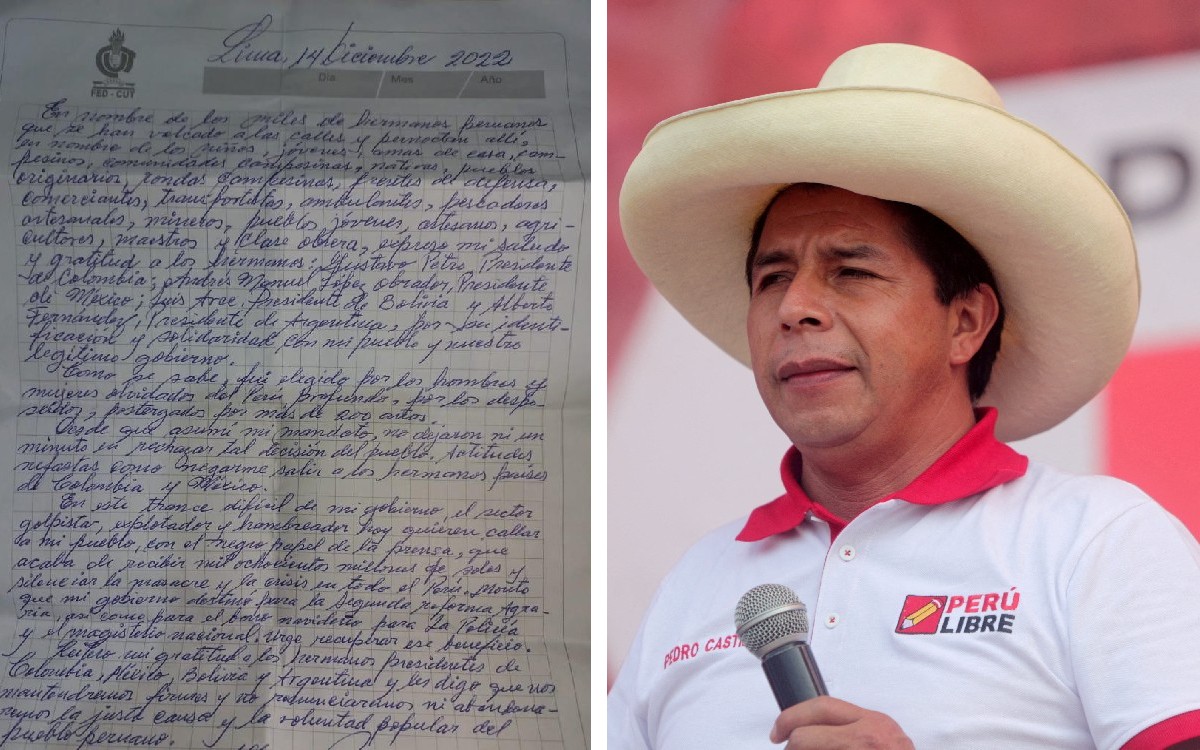 Lima, 14 Diciembre 2022
Día Mes Año
FED-CUT
En nombre de los miles de hermanos peruanos
que se han volcado a las calles y pernoctan allí,
en nombre de los niños, jóvenes, amas de casa, cam-
pesinos, comunidades campesinas, nativas, pueblos
originarios, rondas campesinas, frentes de defensa,
comerciantes, transportistas, ambulantes, pescadores
artesanales, mineros, pueblos jóvenes, artesanos, agri-
cultores, maestros y clase obrera, expreso mi saludo
y gratitud a los hermanos: Gustavo Petro, Presidente
de Colombia; Andrés Manuel López obrador, Presidente
de México; Luis Arce, Presidente de Bolivia y Alberto
Fernández, Presidente de Argentina, por su identi-
ficación y solidaridad con mi pueblo y nuestro
legítimo gobierno.
Como se sabe, fui elegido por los hombres y
mujeres olvidados del Perú profundo, por los despo-
seídos, postergados por más de 200 años.
Desde que asumí mi mandato, no dejaron ni un
minuto en rechazar tal decisión del pueblo. Actitudes
nefastas como negarme salir a los hermanos países
de Colombia y México.
En este trance difícil de mi gobierno, el sector
golpista, explotador y hambreador hoy quieren callar
a mi pueblo, con el negro papel de la prensa, que
acaba de recibir mil ochocientos millones de soles y
silenciar la masacre y la crisis en todo el Perú. Monto
que mi gobierno destinó para la Segunda reforma Agra-
ria, así como para el bono navideño para La Policía
y el magisterio nacional. Urge recuperar ese beneficio.
Reitero mi gratitud a los hermanos presidentes de
Colombia, México, Bolivia y Argentina y les digo que nos
mantendremos firmes y no renunciaremos ni abandona-
remos la justa causa y la voluntad popular del
pueblo peruano.
PEDRO CAST
PERÚ
LIBRE